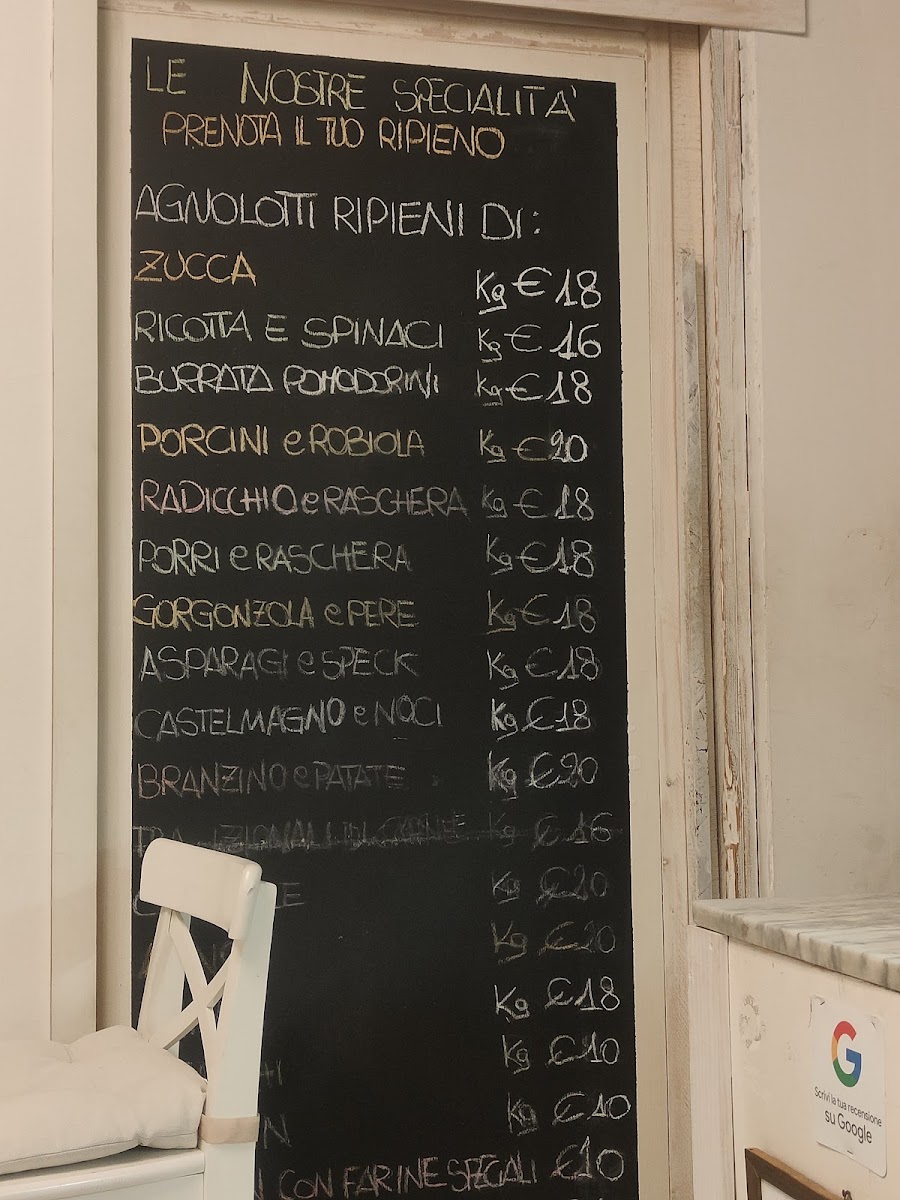 LE NOSTRE SPECIALITA'
PRENOTA IL TUO RIPIENO
AGNOLOTTI RIPIENI DI:
ZUCCA Kg € 18
RICOTTA E SPINACI Kg € 16
BURRATA POMODORINI Kg € 18
PORCINI e ROBIOLA Kg € 20
RADICCHIO e RASCHERA Kg € 18
PORRI e RASCHERA Kg € 18
GORGONZOLA e PERE Kg € 18
ASPARAGI e SPECK Kg € 18
CASTELMAGNO e NOCI Kg € 18
BRANZINO e PATATE Kg € 20
Kg € 16
Kg € 20
Kg € 20
Kg € 18
Kg € 10
Kg € 10
CON FARINE SPECIALI €10
G
Scrivi la tua recensione
su Google